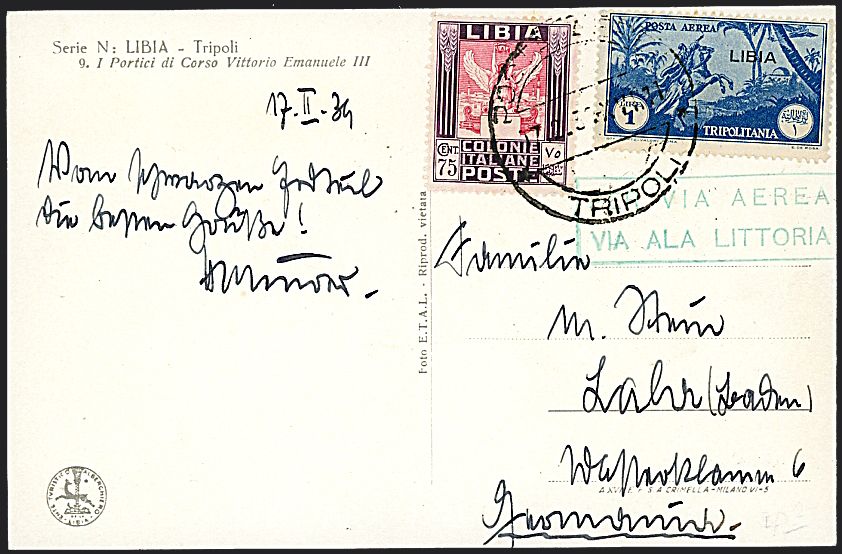 Serie N: LIBIA - Tripoli
9. I Portici di Corso Vittorio Emanuele III
17.II.39
Vom schwarzen Erdteil
die besten Grüße!
LIBIA
CENT. 75
COLONIE
ITALIANE
POSTE
٧٥
POSTA AEREA
LIBIA
1
١
TRIPOLITANIA
TRIPOLI
VIA AEREA
VIA ALA LITTORIA
Familie
M. Stein
Lahr (Baden)
6
Germania.
Foto E.T.A.L. - Riprod. vietata
S A CRIMELLA - MILANO VI-5
ENTE TURISTICO ALBERGHIERO LIBIA